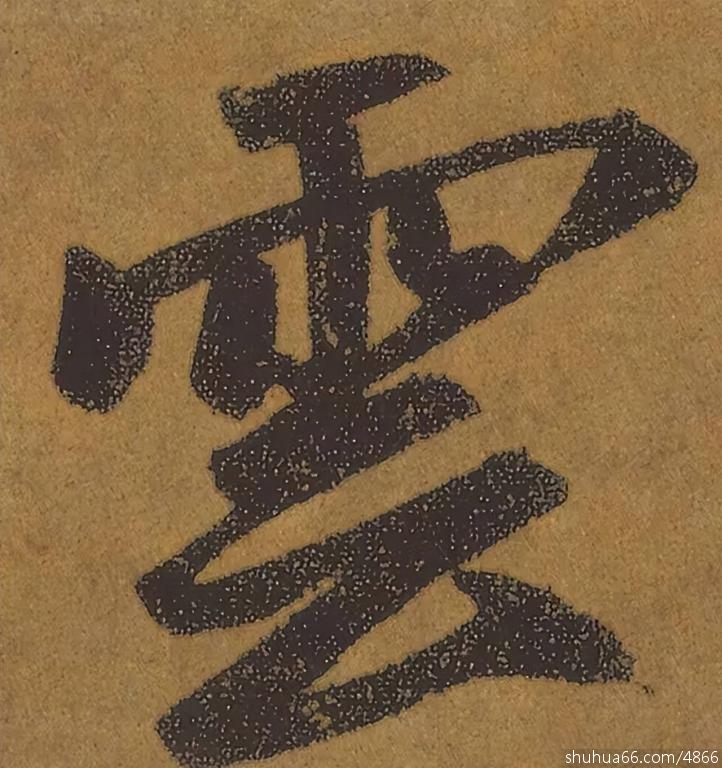 雲
shuhua66.com/4866